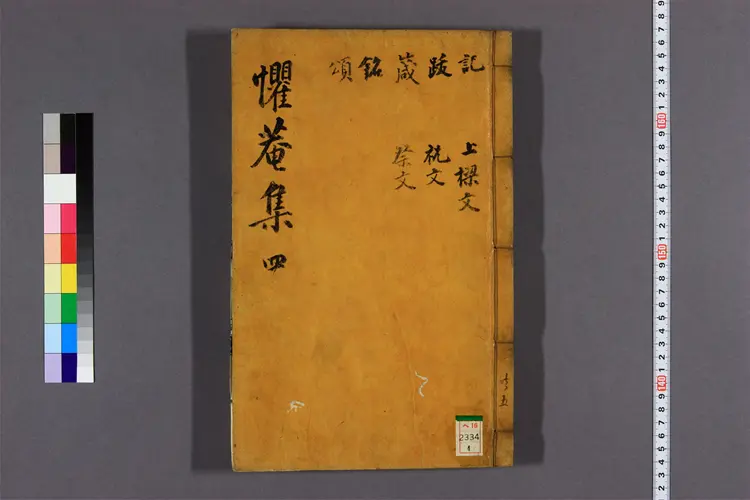 懼菴集 四
記
跋
箴
銘
頌
上樑文
祝文
祭文
五
ハ16
2334